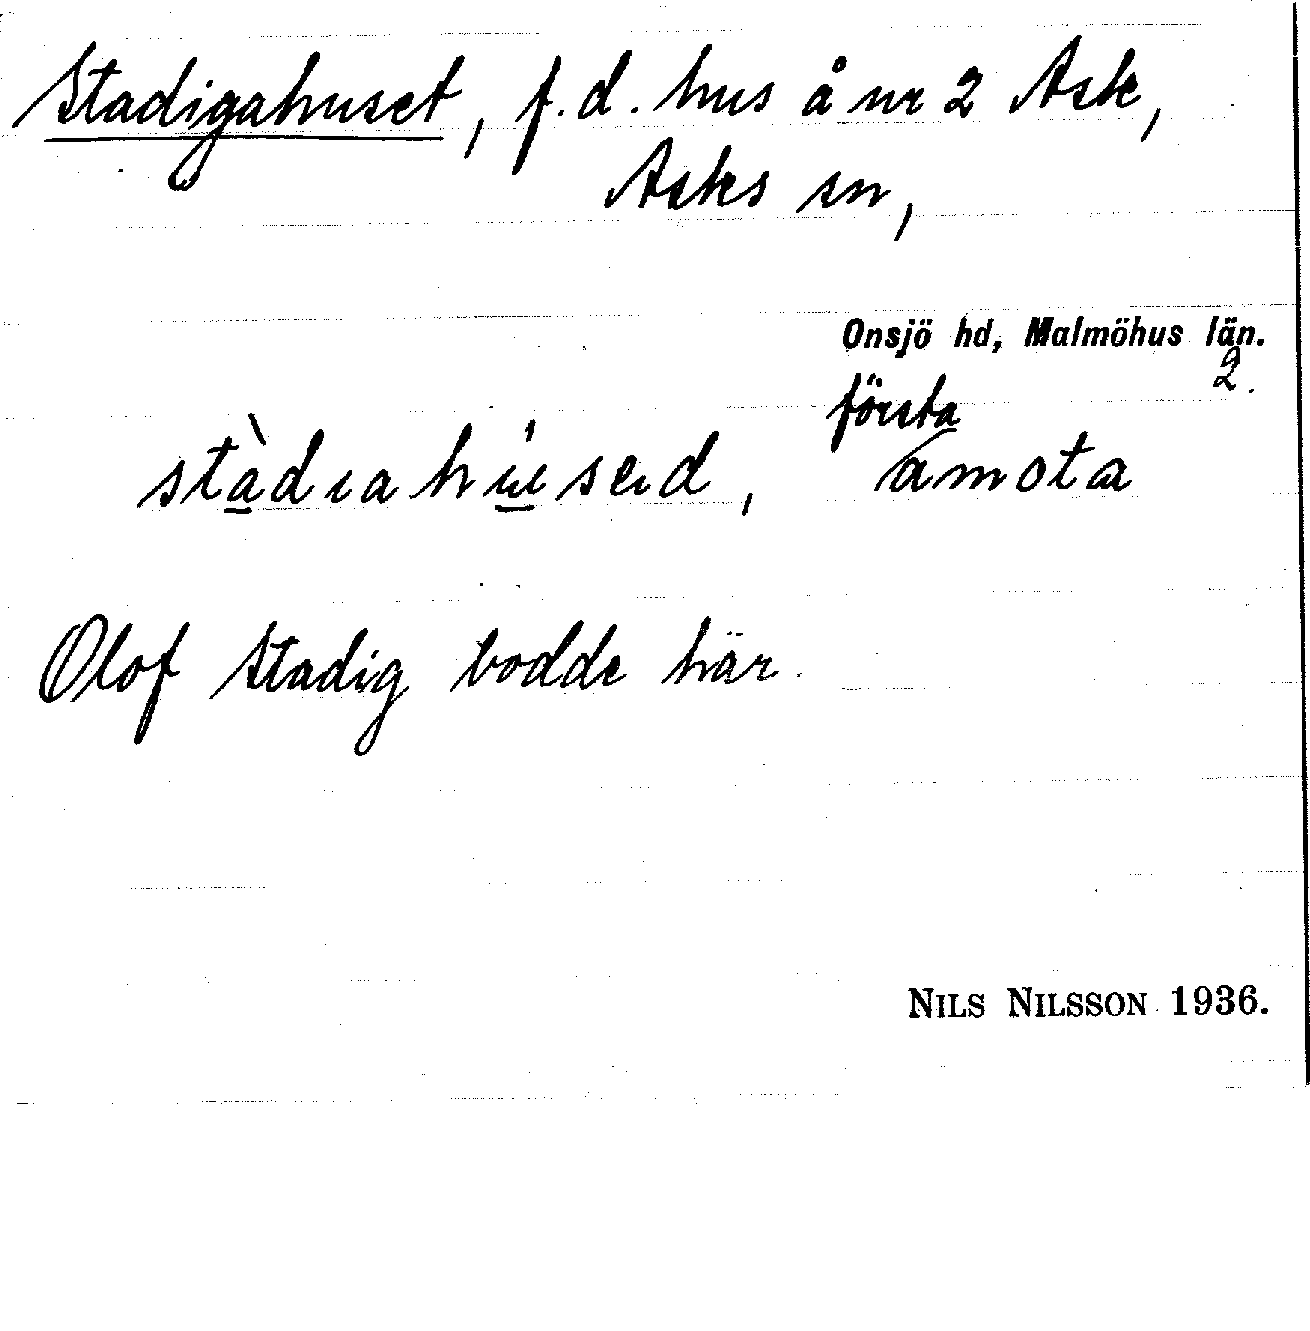 Stadigahuset, f.d. hus å nr 2 Ask,
Asks sn,
Onsjö hd, Malmöhus län.
2.
första
stàdıahúsed, amota
Olof Stadig bodde här.
NILS NILSSON 1936.